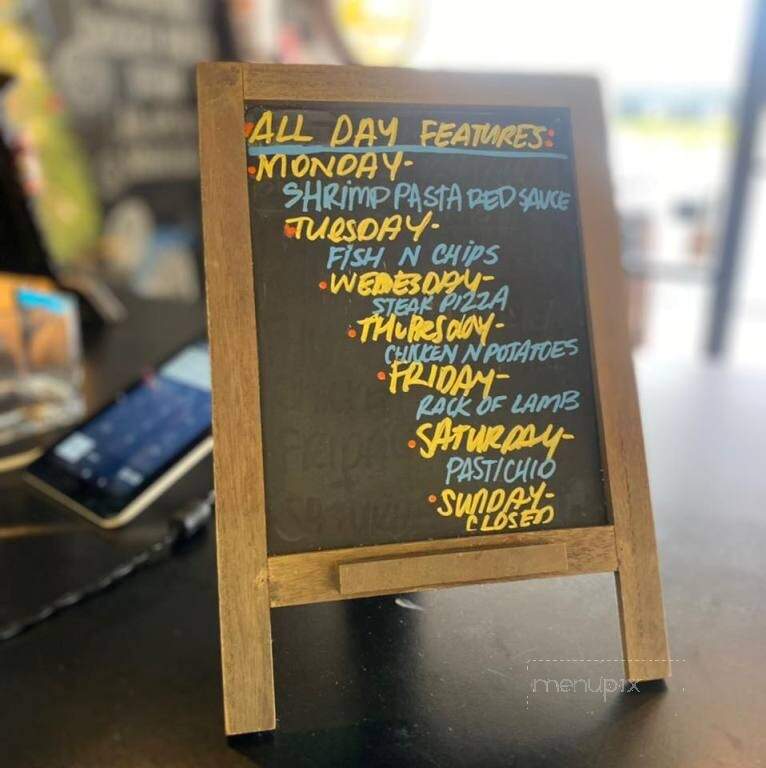 ALL DAY FEATURES:
MONDAY-
SHRIMP PASTA RED SAUCE
TUESDAY-
FISH N CHIPS
WEDESDAY-
STEAK PIZZA
THURSDAY-
CHICKEN N POTATOES
FRIDAY-
RACK OF LAMB
SATURDAY-
PASTICHIO
SUNDAY-
CLOSED
menupix